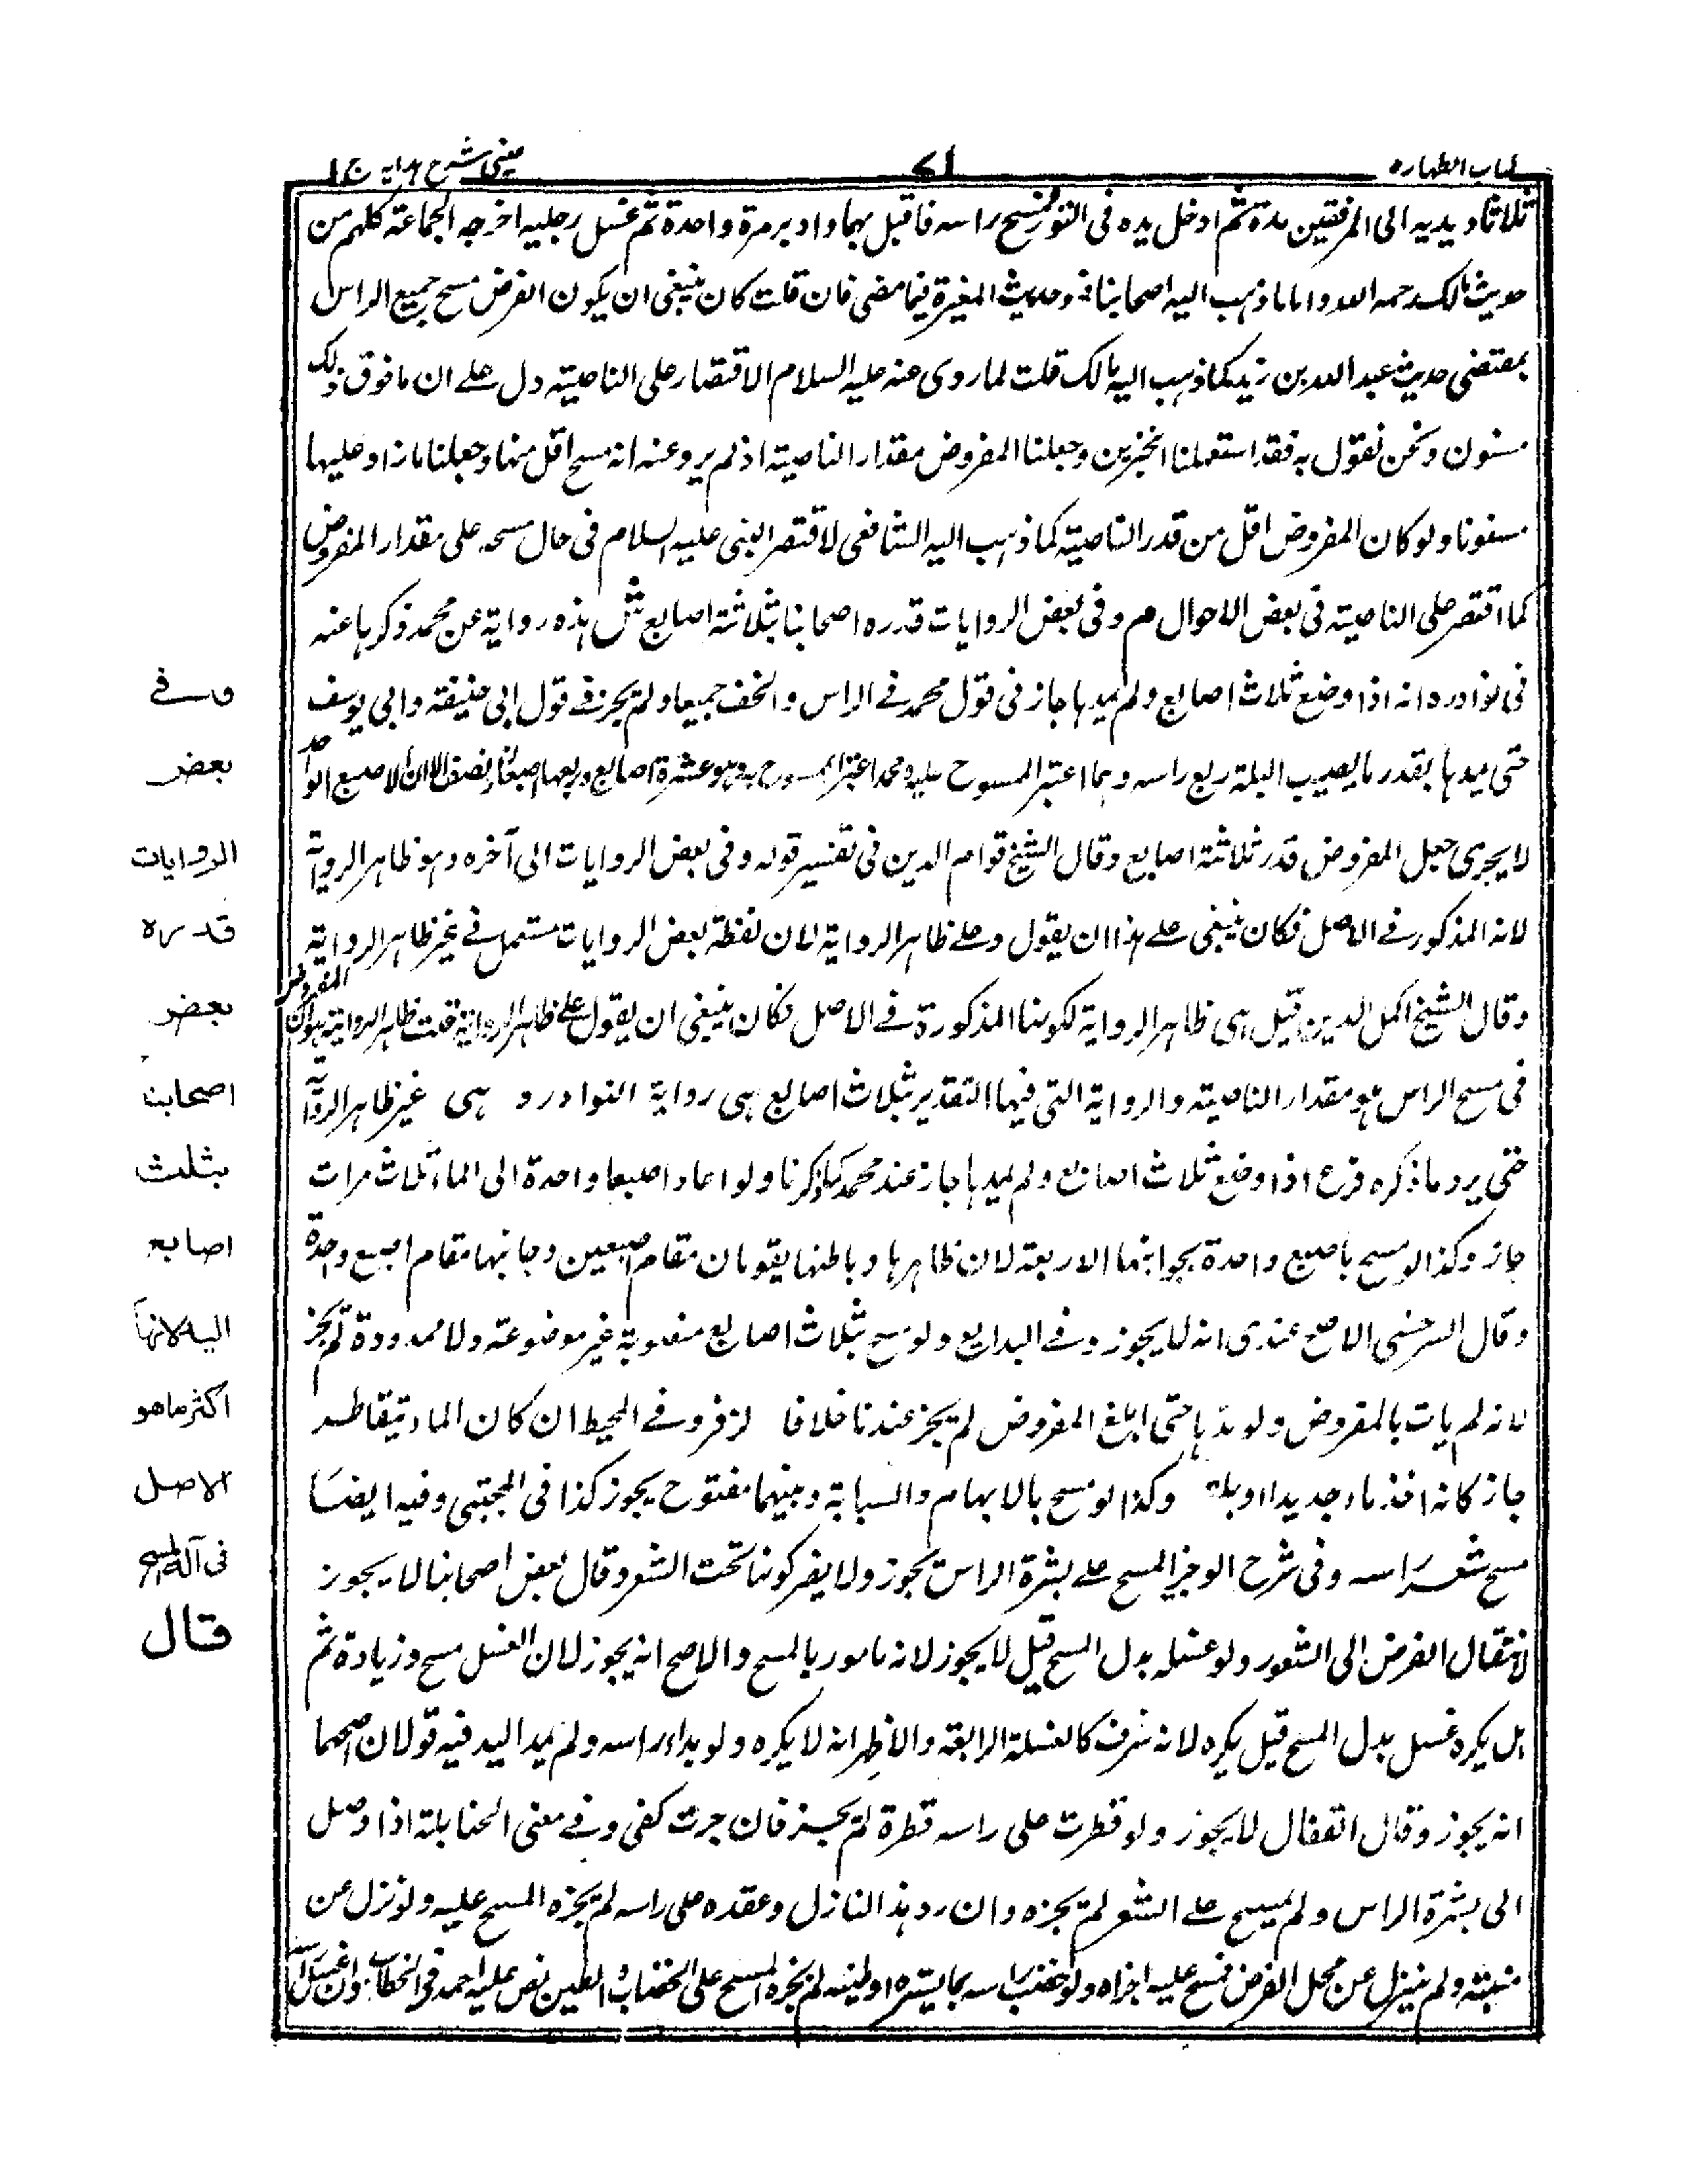 كتاب الطهارة
٧١
عینی شرح هدایه ج ١
ثلاثا ويديه الى المرفقين مرة ثم ادخل يده فى التور فمسح راسه فاقبل بهما وادبر مرة واحدة ثم غسل رجليه اخرجه الجماعة كلهم من
حديث مالك رحمه الله واما ما ذهب اليه اصحابنا وحديث المغيرة فيما مضى فان قلت كان ينبغى ان يكون الفرض مسح جميع الراس
بمقتضى حديث عبد الله بن زيد كما ذهب اليه مالك قلت لما روى عنه عليه السلام الاقتصار على الناصية دل على ان ما فوق ذلك
مسنون ونحن نقول به فقد استعملنا الخبرين وجعلنا المفروض مقدار الناصية اذ لم يرو عنه انه مسح اقل منها وجعلنا ما زاد عليها
مسنونا ولو كان المفروض اقل من قدر الناصية كما ذهب اليه الشافعى لاقتصر النبى عليه السلام فى حال مسحه على مقدار المفروض
كما اقتصر على الناصية فى بعض الاحوال م وفى بعض الروايات قدره اصحابنا بثلاثة اصابع ش هذه رواية عن محمد ذكرها عنه
فى نوادره انه اذا وضع ثلاث اصابع ولم يمدها جاز فى قول محمد فى الراس والخف جميعا ولم يجز فى قول ابى حنيفة وابى يوسف
حتى يمدها بقدر ما يصيب البلة ربع راسه وهما اعتبرا الممسوح عليه ومحمد اعتبر الممسوح به وهو عشرة اصابع وربعها اصبعان ونصف الا ان الاصبع الواحد
لا يجزى جعل المفروض قدر ثلاثة اصابع وقال الشيخ قوام الدين فى تفسير قوله وفى بعض الروايات الى آخره وهو ظاهر الرواية
لانه المذكور فى الاصل فكان ينبغى على هذا ان يقول وعلى ظاهر الرواية لان لفظة بعض الروايات مستعمل فى غير ظاهر الرواية
وقال الشيخ اكمل الدين قيل هى ظاهر الرواية لكونها المذكورة فى الاصل فكان ينبغى ان يقول على ظاهر الرواية قلت ظاهر الرواية هو ان المفروض
فى مسح الراس هو مقدار الناصية والرواية التى فيها التقدير بثلاث اصابع هى رواية النوادر و هى غير ظاهر الرواية
حتى يرد ما ذكره فرع اذا وضع ثلاث اصابع ولم يمدها جاز عند محمد كما ذكرنا ولو اعاد اصبعا واحدة الى الماء ثلاث مرات
جاز وكذا لو مسح باصبع واحدة بجوانبها الاربعة لان ظاهرها وباطنها يقومان مقام اصبعين وجانبها مقام اصبع واحدة
وقال السرخسى الاصح عندى انه لا يجوز وفى البدايع ولو مسح بثلاث اصابع منصوبة غير موضوعة ولا ممدودة لم يجز
لانه لم يات بالمفروض ولو مدها حتى ابلغ المفروض لم يجز عندنا خلافا لزفر وفى المحيط ان كان الماء يتقاطر
جاز كانه اخذ ماء جديدا وكذا لو مسح بالابهام والسبابة وبينهما مفتوح يجوز كذا فى المجتبى وفيه ايضا
مسح شعر راسه وفى شرح الوجيز المسح على بشرة الراس يجوز ولا يضر كونها تحت الشعر وقال بعض اصحابنا لا يجوز
لانتقال الفرض الى الشعور ولو غسله بدل المسح قيل لا يجوز لانه مامور بالمسح والاصح انه يجوز لان الغسل مسح وزيادة ثم
هل يكره غسل بدل المسح قيل يكره لانه سرف كالغسلة الرابعة والاظهر انه لا يكره ولو بدا راسه ولم يمد اليد فيه قولان اصحهما
انه يجوز وقال القفال لا يجوز ولو قطرت على راسه قطرة لم يجز فان جرت كفى وفى مغنى الحنابلة اذا وصل
الى بشرة الراس ولم يمسح على الشعر لم يجزه وان رد هذا النازل وعقده على راسه لم يجزه المسح عليه ولو نزل عن
منبته ولم ينزل عن محل الفرض فمسح عليه اجزاه ولو خضب راسه بما يستره او طينه لم يجزه المسح على الخضاب والطين نص عليه احمد فى الخضاب وان غسل راسه
م وفى
بعض
الروايات
قدره
بعض
اصحابنا
بثلث
اصابع
اليد لانها
اكثر ما هو
الاصل
فى آلة المسح
قال